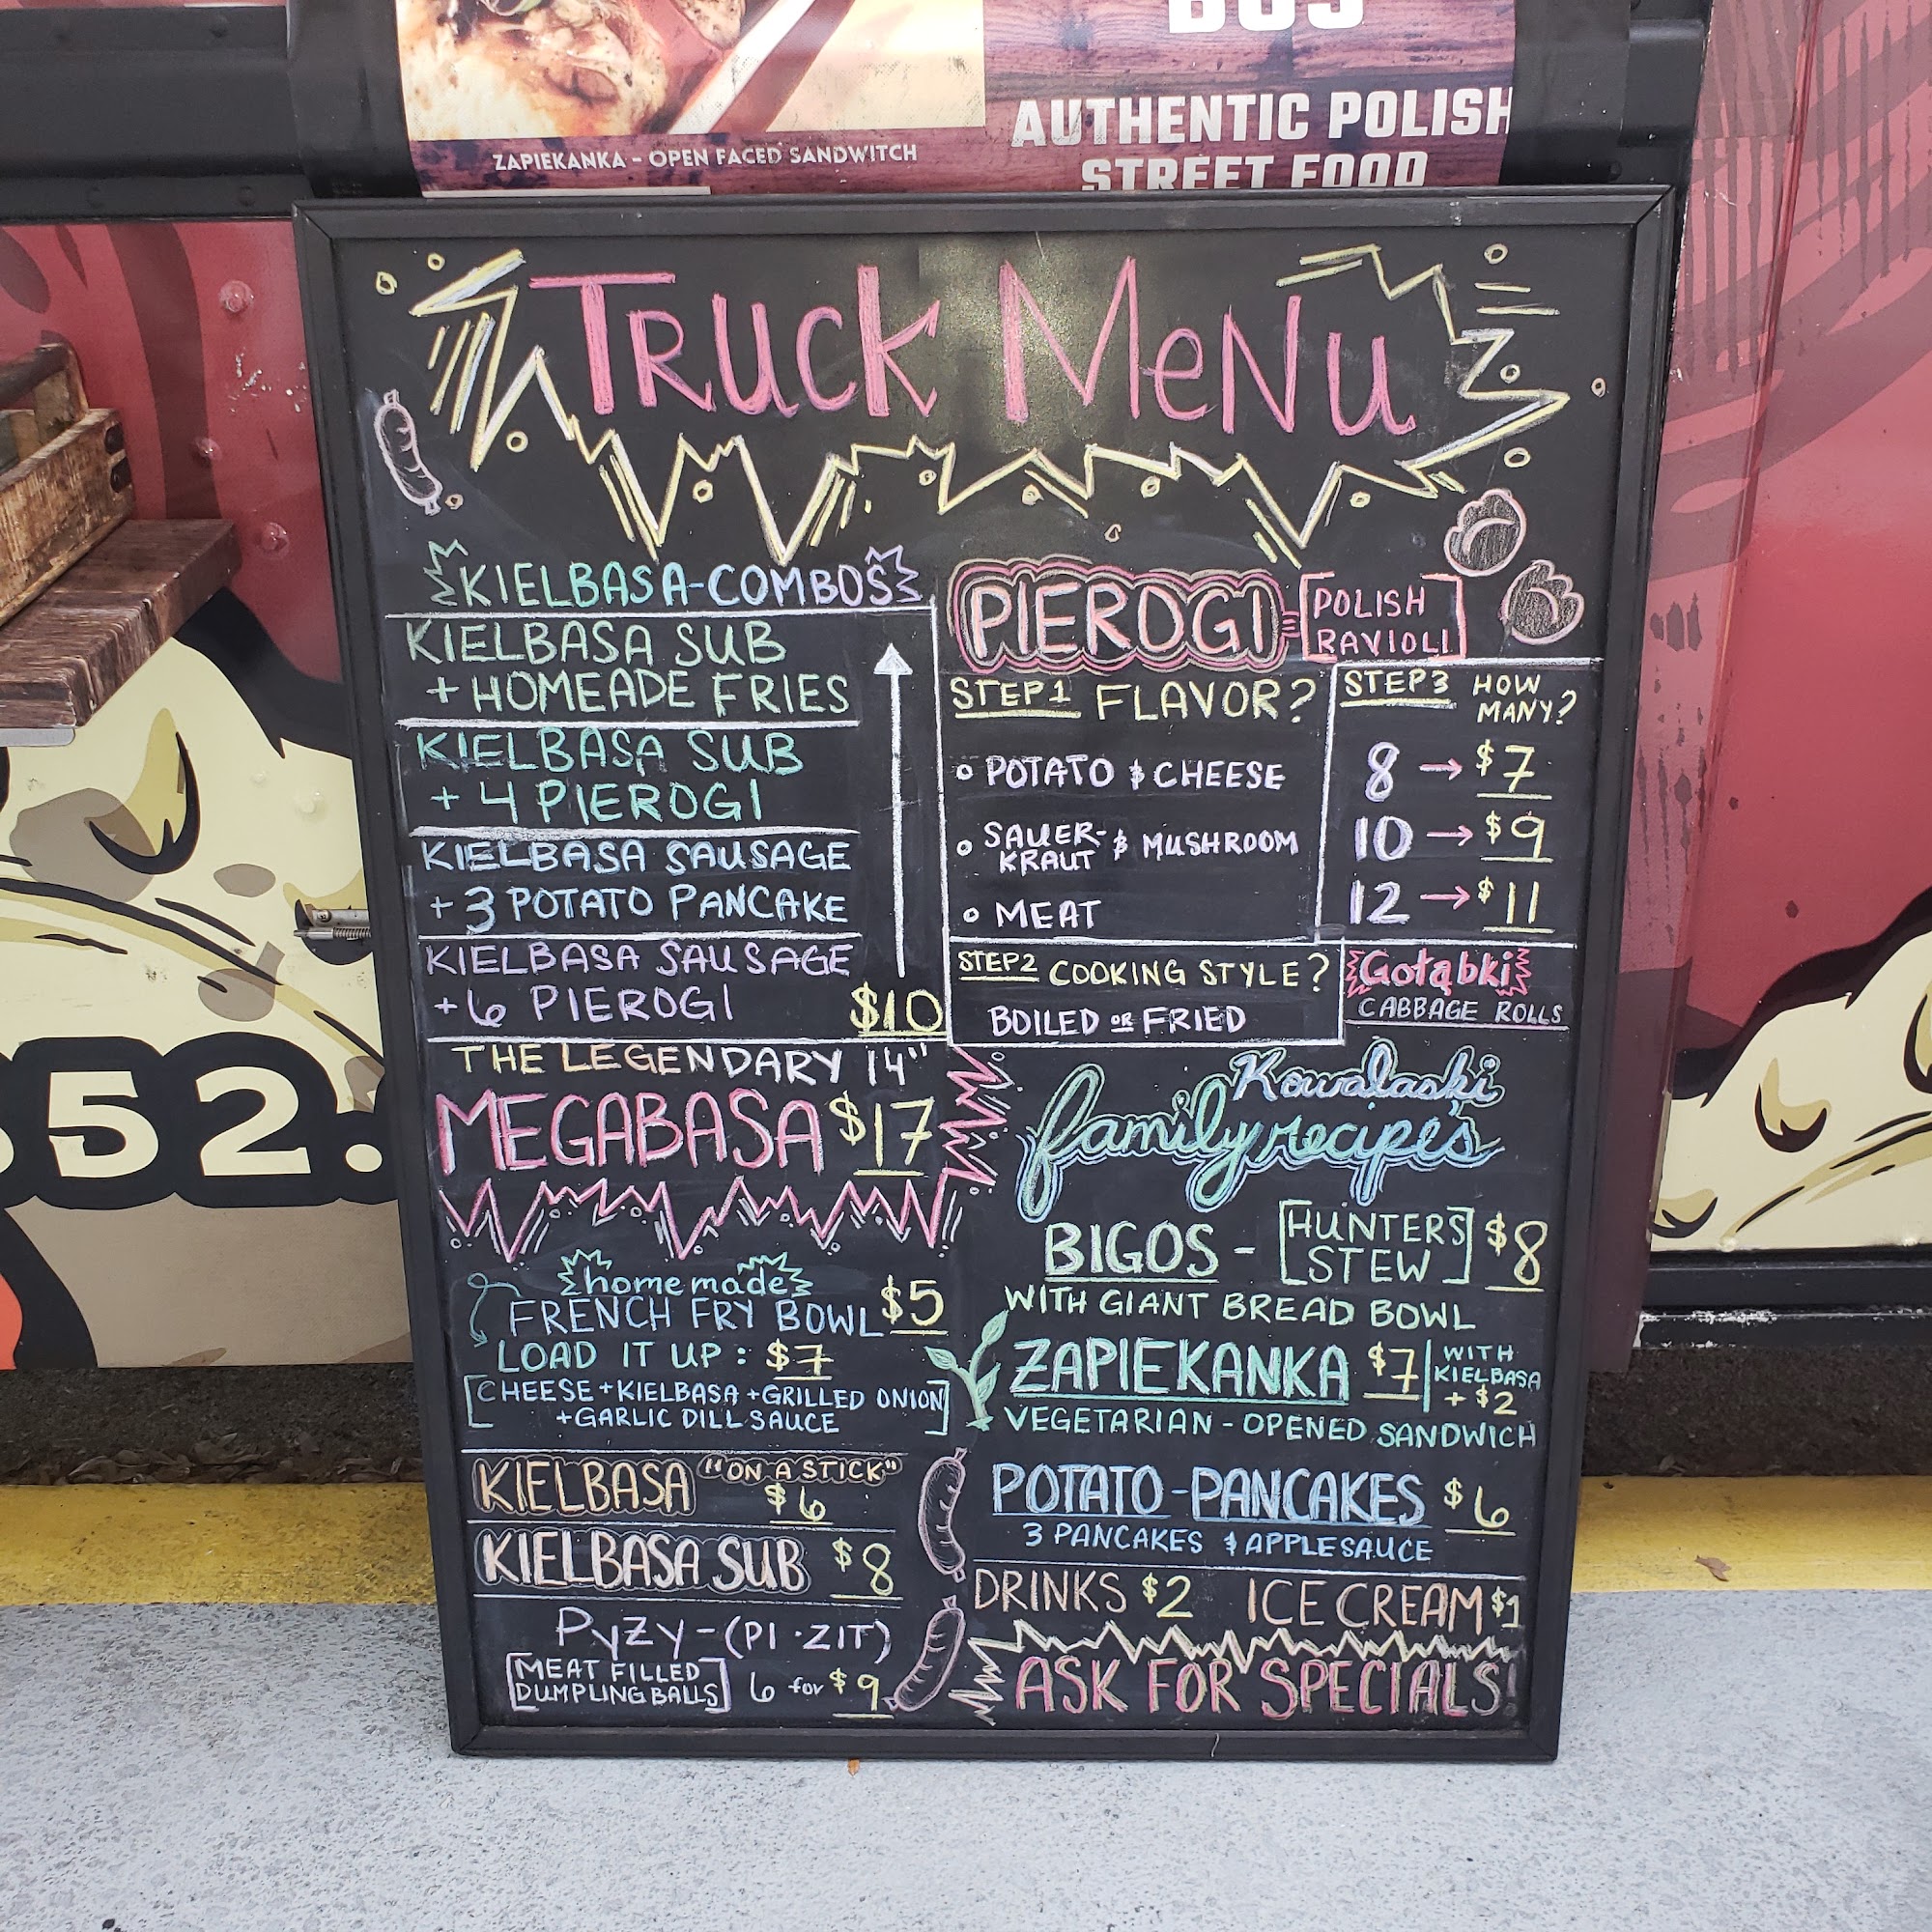 BUS
ZAPIEKANKA - OPEN FACED SANDWITCH
AUTHENTIC POLISH
STREET FOOD
TRUCK MENU
KIELBASA-COMBOS
KIELBASA SUB
+ HOMEADE FRIES
KIELBASA SUB
+ 4 PIEROGI
KIELBASA SAUSAGE
+ 3 POTATO PANCAKE
KIELBASA SAUSAGE
+ 6 PIEROGI $10
THE LEGENDARY 14"
MEGABASA $17
homemade
FRENCH FRY BOWL $5
LOAD IT UP: $7
[CHEESE + KIELBASA + GRILLED ONION
+ GARLIC DILL SAUCE]
KIELBASA "ON A STICK"
$6
KIELBASA SUB $8
PYZY - (PI · ZIT)
[MEAT FILLED
DUMPLING BALLS] 6 for $9
PIEROGI = [POLISH
RAVIOLI]
STEP 1 FLAVOR?
• POTATO & CHEESE
• SAUER-
KRAUT & MUSHROOM
• MEAT
STEP 2 COOKING STYLE?
BOILED OR FRIED
STEP 3 HOW
MANY?
8 → $7
10 → $9
12 → $11
Gołąbki
CABBAGE ROLLS
Kowalaski
family recipes
BIGOS - [HUNTERS
STEW] $8
WITH GIANT BREAD BOWL
ZAPIEKANKA $7
WITH
KIELBASA
+ $2
VEGETARIAN - OPENED SANDWICH
POTATO-PANCAKES $6
3 PANCAKES & APPLESAUCE
DRINKS $2 ICE CREAM $1
ASK FOR SPECIALS!
52.